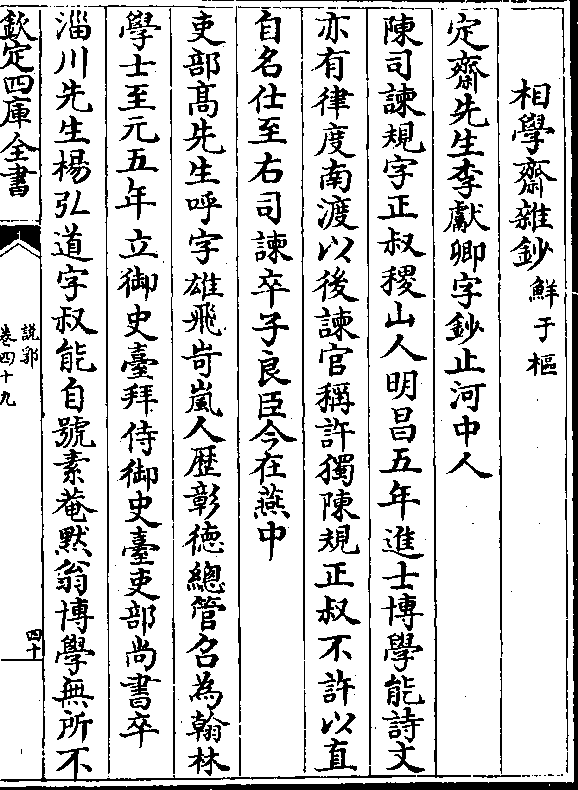 相學齋雜鈔 鮮于樞
定齋先生李獻卿字鈔止河中人
陳司諫規字正叔稷山人明昌五年進士博學能詩文
亦有律度南渡以後諫官稱許獨陳規正叔不許以直
自名仕至右司諫卒子良臣今在燕中
吏部髙先生呼字雄飛岢嵐人歴彰德總管召為翰林
學士至元五年立御史臺拜侍御史臺吏部尚書卒
淄川先生楊弘道字叔能自號素菴黙翁博學無所不
欽定四庫全書
說郛
卷四十九
四十